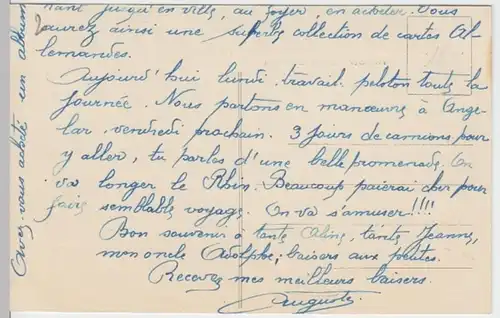 nant jusqu'en ville, au foyer, en acheter. Vous
aurez ainsi une superbe collection de cartes Al-
lemandes.
Aujourd'hui lundi. travail. peloton toute la
journée. Nous partons en manœuvre à Ange-
lar. vendredi prochain. 3 jours de camions pour
y aller, tu parles d'une belle promenade. On
va longer le Rhin. Beaucoup paierai cher pour
faire semblable voyage. On va s'amuser!!!!
Bon souvenir à tante Aline, tante Jeanne,
mon oncle Adolphe; baisers aux petites.
Recevez mes meilleurs baisers.
Auguste.
Avez vous acheté un album